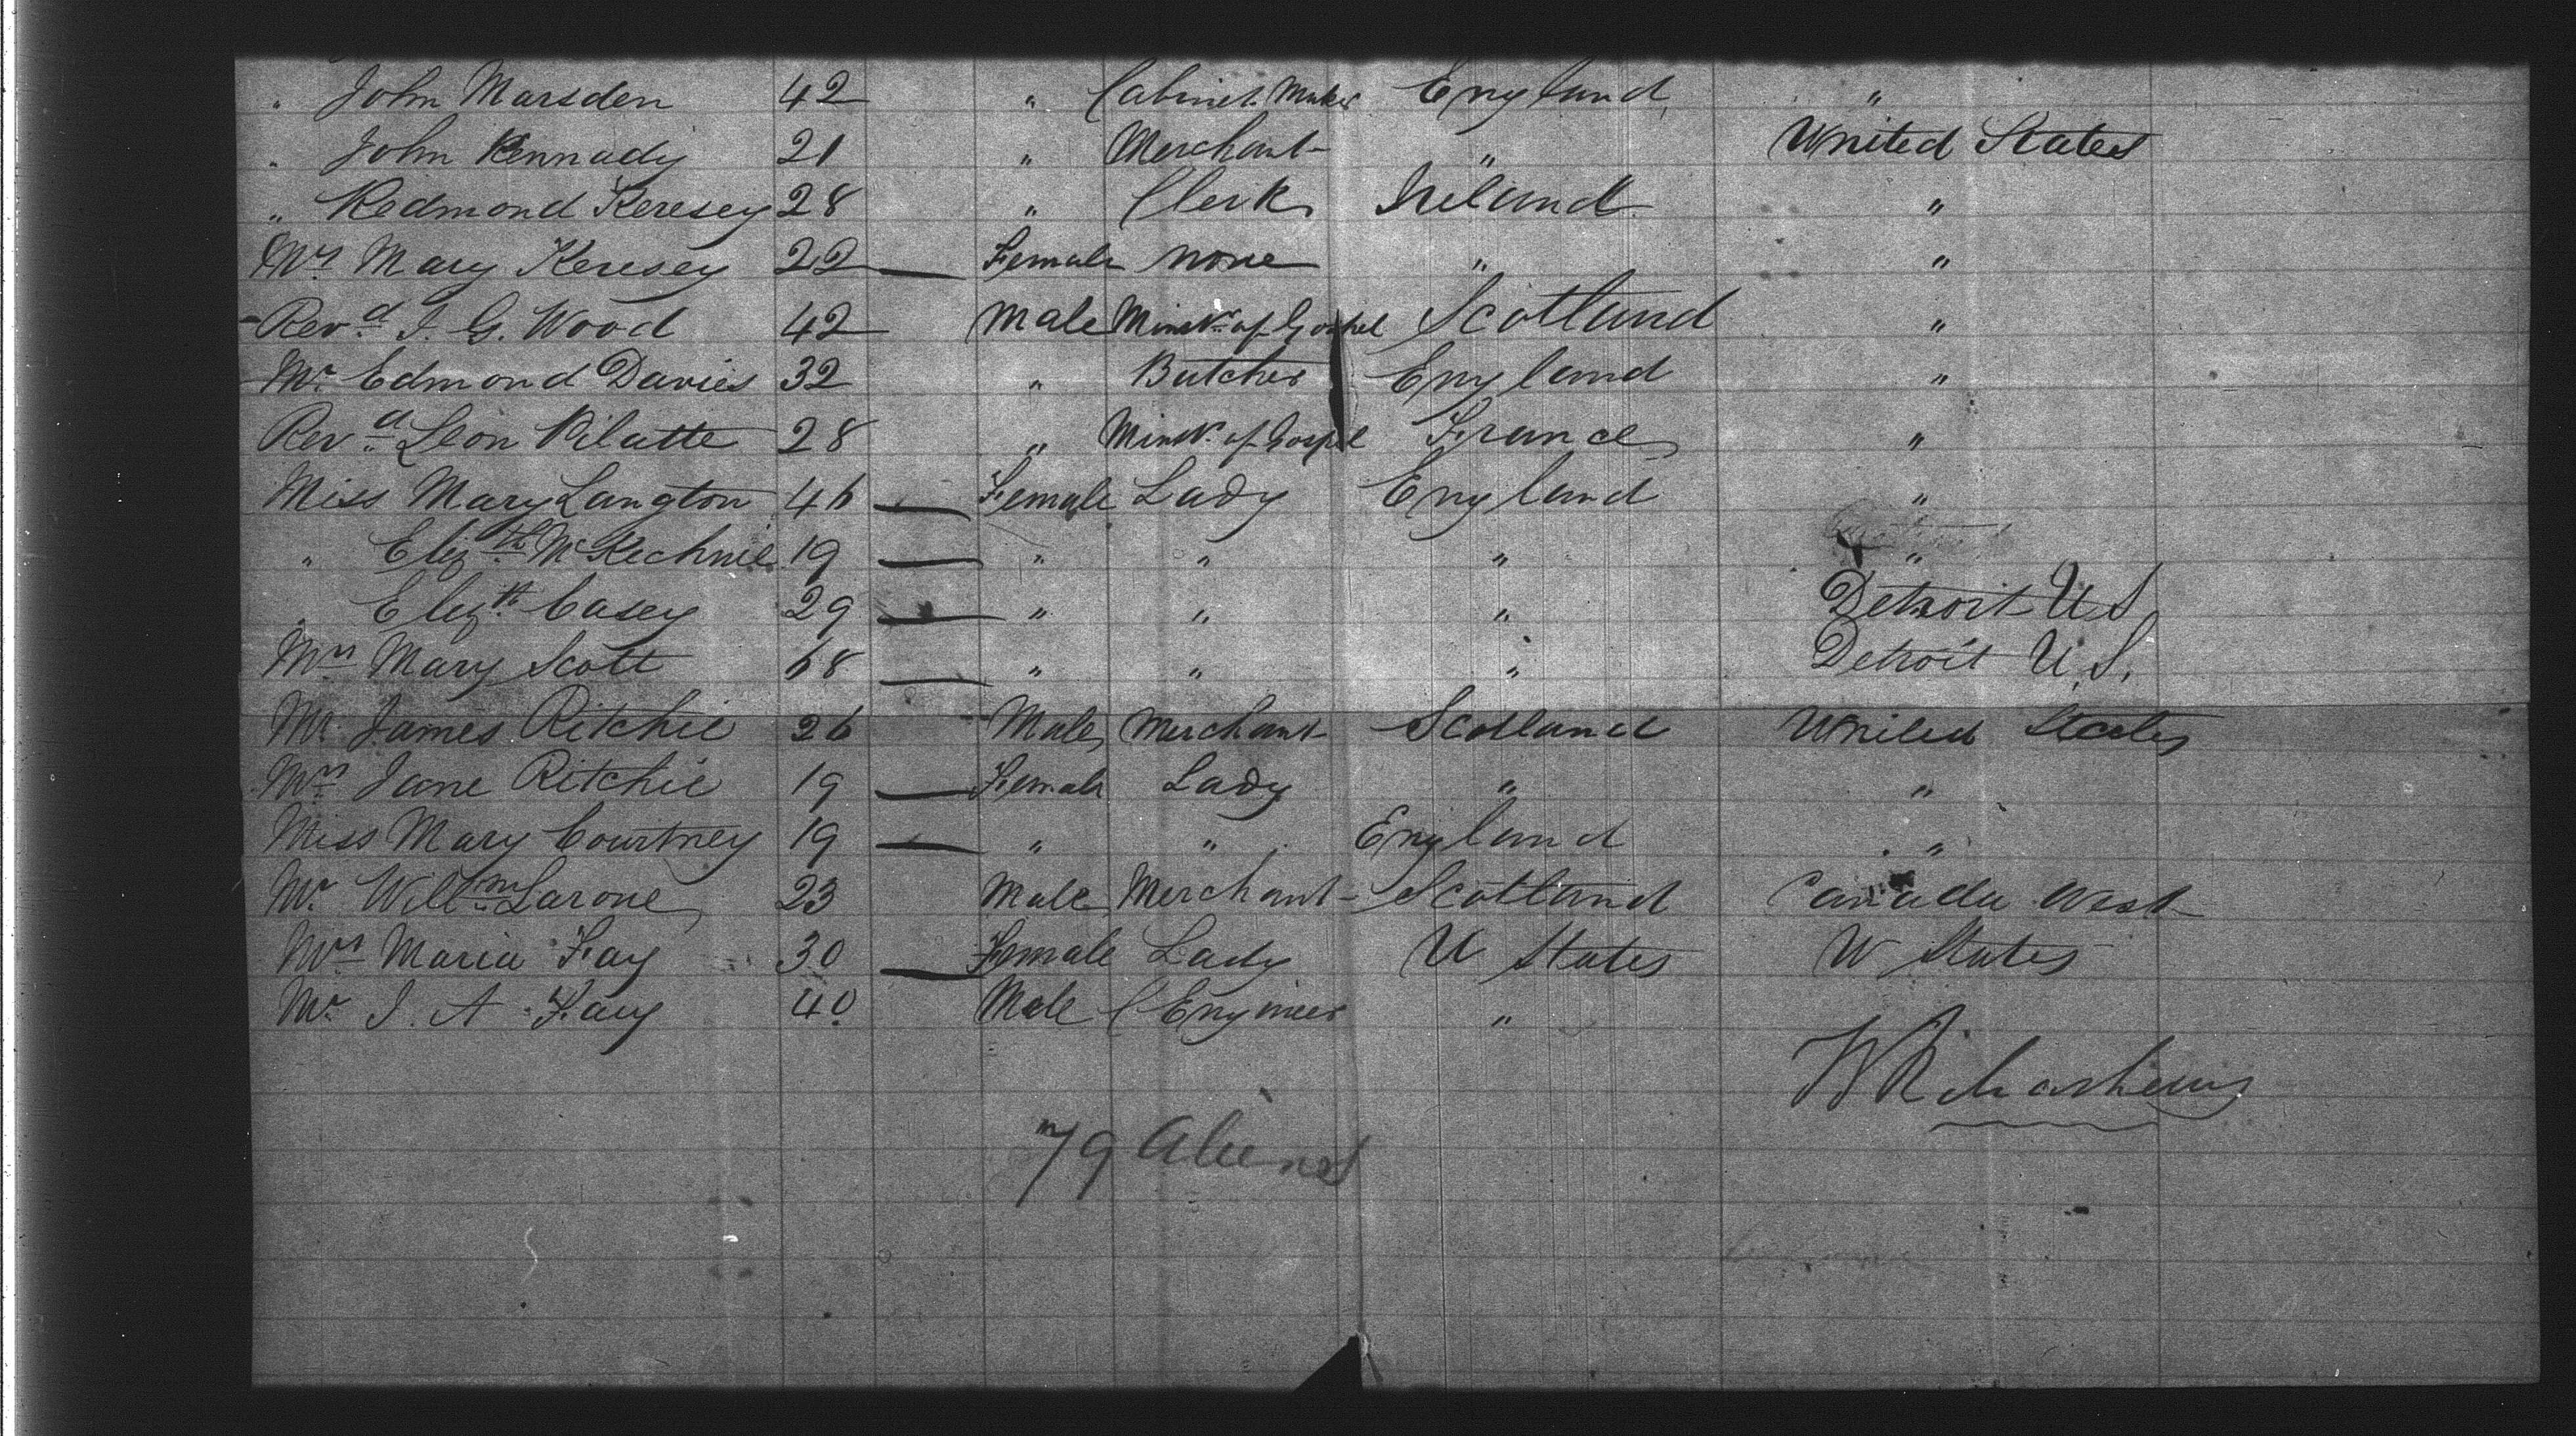 " John Marsden 42 " Cabinet Maker England "
" John Kennady 21 " Merchant " United States
" Redmond Keresey 28 " Clerk Ireland "
Mrs Mary Keresey 22 — Female none " "
Revd J. G. Wood 42 Male Minstr of Gospel Scotland "
Mr Edmond Davies 32 " Butcher England "
Revd Leon Pilatte 28 " Minstr of Gospel France "
Miss Mary Langton 46 — Female Lady England "
" Elizth McKechnie 19 — " " " "
" Elizth Casey 29 — " " " Detroit U S
Mrs Mary Scott 68 — " " " Detroit U.S.
Mr James Ritchie 26 Male Merchant Scotland United States
Mrs Jane Ritchie 19 — Female Lady " "
Miss Mary Courtney 19 — " " England "
Mr Willm Larone 23 Male Merchant Scotland Canada West
Mrs Maria Fay 30 — Female Lady U States U States
Mr J. A Fay 40 Male Engineer "
79 Aliens